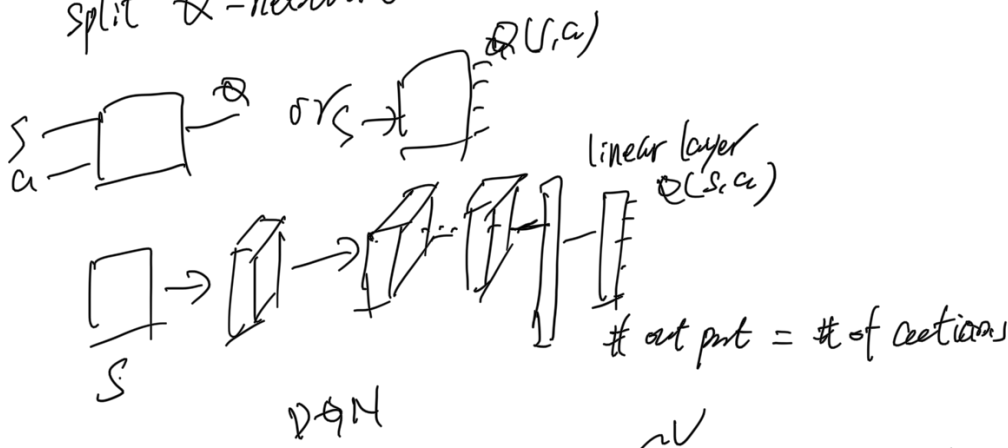 split Q-network
Q(s,a)
s
a
Q
or s
linear layer
Q(s,a)
S
# output = # of actions
DQN
V